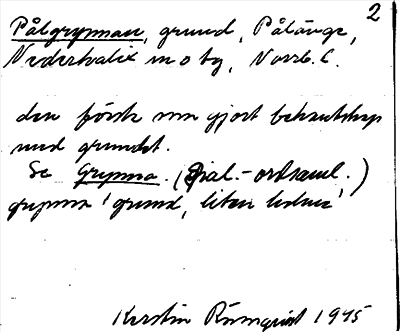 2
Pålgrynnan, grund, Pålänge,
Nederkalix sn o tg, Norrb. l.
den förste som gjort bekantskap
med grundet.
Se Grynna. (Dial.-ordsaml.)
grynna 'grund, liten
Kerstin Rönnqvist 1945